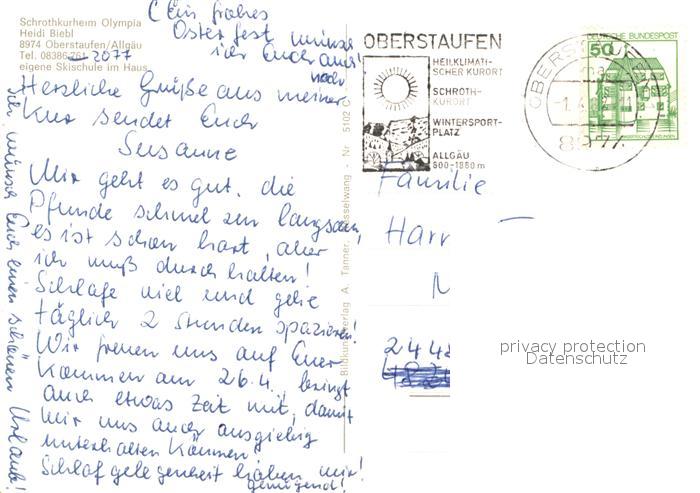 Schrothkurheim Olympia
Heidi Biebl
8974 Oberstaufen/Allgäu
Tel. 08386-761 - 2077
eigene Skischule im Haus
(Ein frohes
Osterfest wünsch
ich Euch auch!
noch
Herzliche Grüße aus meiner
Kur sendet Euch
Susanne
Mir geht es gut, die
Pfunde schmelzen langsam,
es ist schon hart, aber
ich muß durchhalten!
Schlafe viel und gehe
täglich 2 Stunden spazieren!
Wir freuen uns auf Euer
Kommen am 26.4., bringt
auch etwas Zeit mit, damit
wir uns auch ausgiebig
unterhalten können.
Schlafgelegenheit haben wir!
genügend!
Ich wünsch Euch einen schönen Urlaub!
Bildkunstverlag A. Tanner, Nesselwang - Nr 5102 C
OBERSTAUFEN
HEILKLIMATI-
SCHER KURORT
SCHROTH-
KURORT
WINTERSPORT-
PLATZ
ALLGÄU
800-1850 m
OBERSTAUFEN
DEUTSCHE BUNDESPOST
50
Familie
Harr
244
privacy protection
Datenschutz